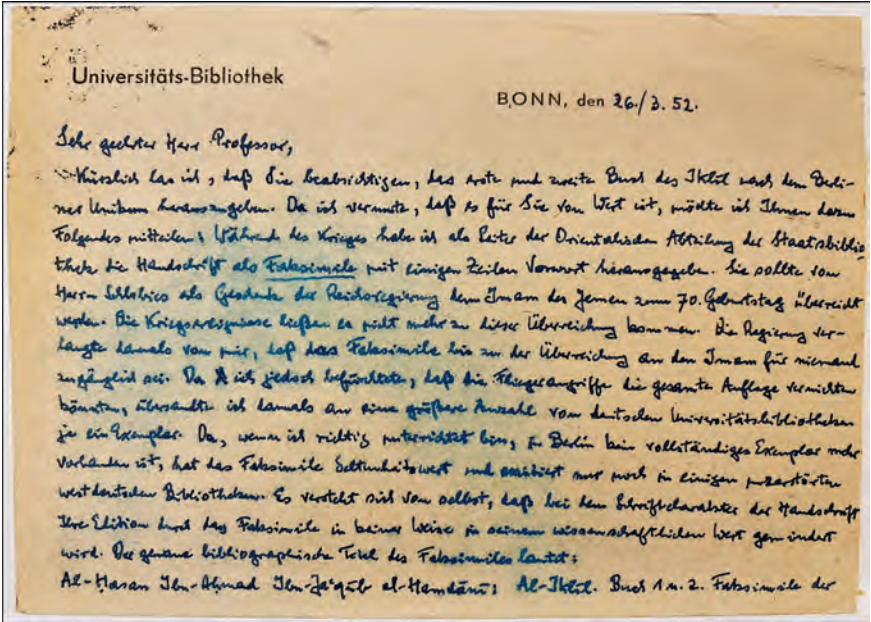 Universitäts-Bibliothek
BONN, den 26./3. 52.
Sehr geehrter Herr Professor,
Kürzlich las ich, daß Sie beabsichtigen, das erste und zweite Buch des Iklil nach dem Berli-
ner Unikum herauszugeben. Da ich vermute, daß es für Sie von Wert ist, möchte ich Ihnen dazu
Folgendes mitteilen: Während des Krieges habe ich als Leiter der Orientalischen Abteilung der Staatsbiblio-
thek die Handschrift als Faksimile mit einigen Zeilen Vorwort herausgegeben. Sie sollte von
Herrn als Geschenk der Reichsregierung dem Imam des Jemen zum 70. Geburtstag überreicht
werden. Die Kriegsereignisse ließen es nicht mehr zu dieser Überreichung kommen. Die Regierung ver-
langte damals von mir, daß das Faksimile bis zu der Überreichung an den Imam für niemand
zugänglich sei. Da ich jedoch befürchtete, daß die Fliegerangriffe die gesamte Auflage vernichten
könnten, übersandte ich damals an eine größere Anzahl von deutschen Universitätsbibliotheken
je ein Exemplar. Da, wenn ich richtig unterrichtet bin, in Berlin kein vollständiges Exemplar mehr
vorhanden ist, hat das Faksimile Seltenheitswert und existiert nur noch in einigen unzerstörten
westdeutschen Bibliotheken. Es versteht sich von selbst, daß bei dem Schriftcharakter der Handschrift
Ihre Edition durch das Faksimile in keiner Weise in seinem wissenschaftlichen Wert gemindert
wird. Der genaue bibliographische Titel des Faksimiles lautet:
Al-Hasan Ibn-Ahmad Ibn-Ja'qūb al-Hamdānī: Al-Iklīl. Buch 1 u. 2. Faksimile der